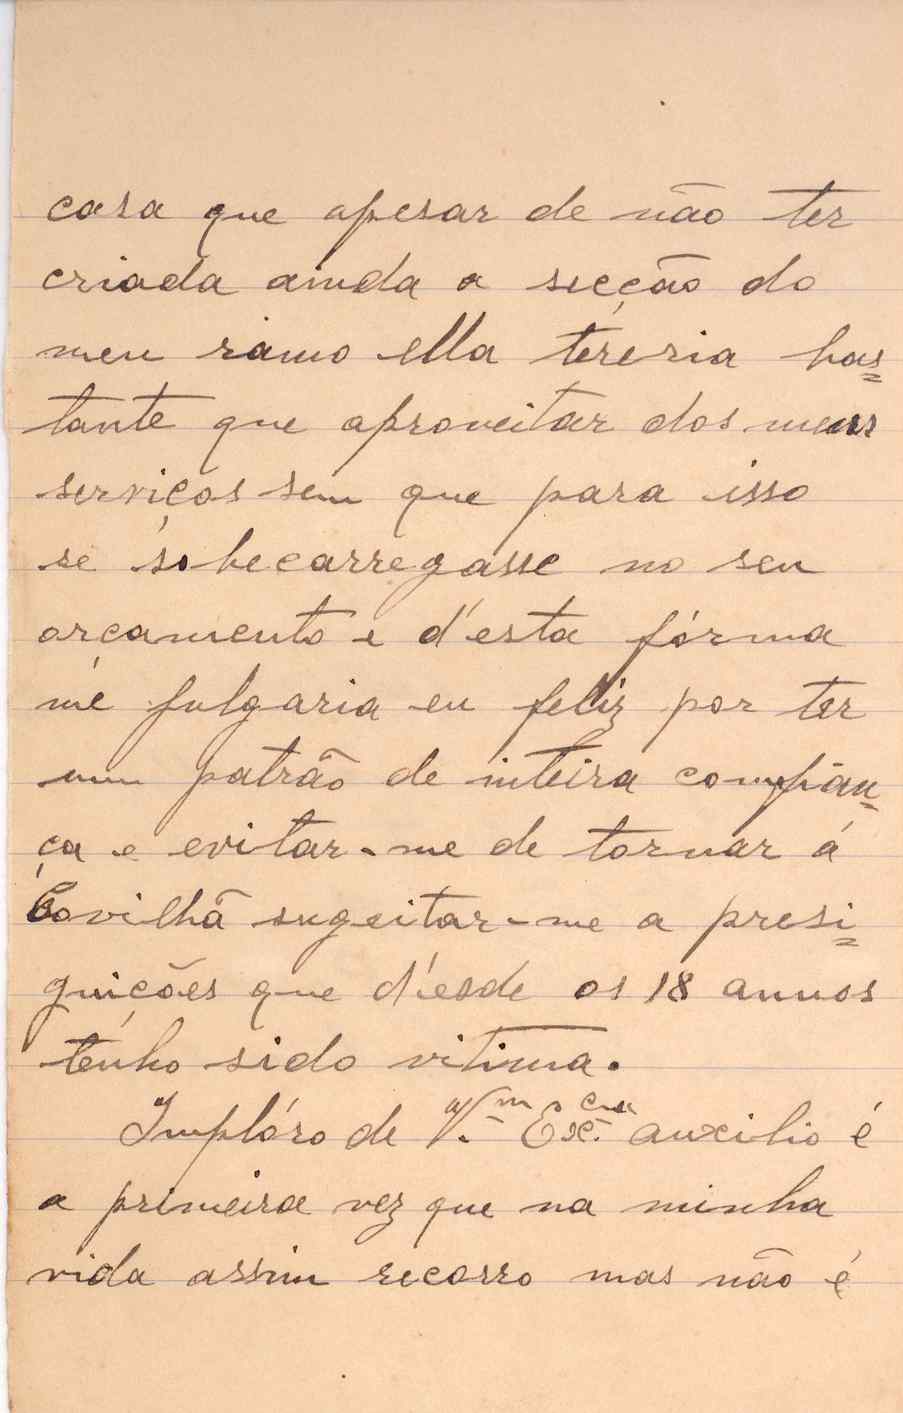 casa que apesar de não ter
criada ainda a secção do
meu ramo ella téreria bas=
tante que aproveitar dos meus
serviços sem que para isso
se sobecarregasse no seu
orçamento e d'esta fórma
me julgaria eu feliz por ter
um patrão de inteira comfian=
ça e evitar-me de tornar á
Covilhã sugeitar-me a presi=
guições que d'esde os 18 annos
tenho sido vitima.
Implóro de V.ᵐ Ex.ᶜⁱᵃ auxilio é
a primeira vez que na minha
vida assim recorro mas não é